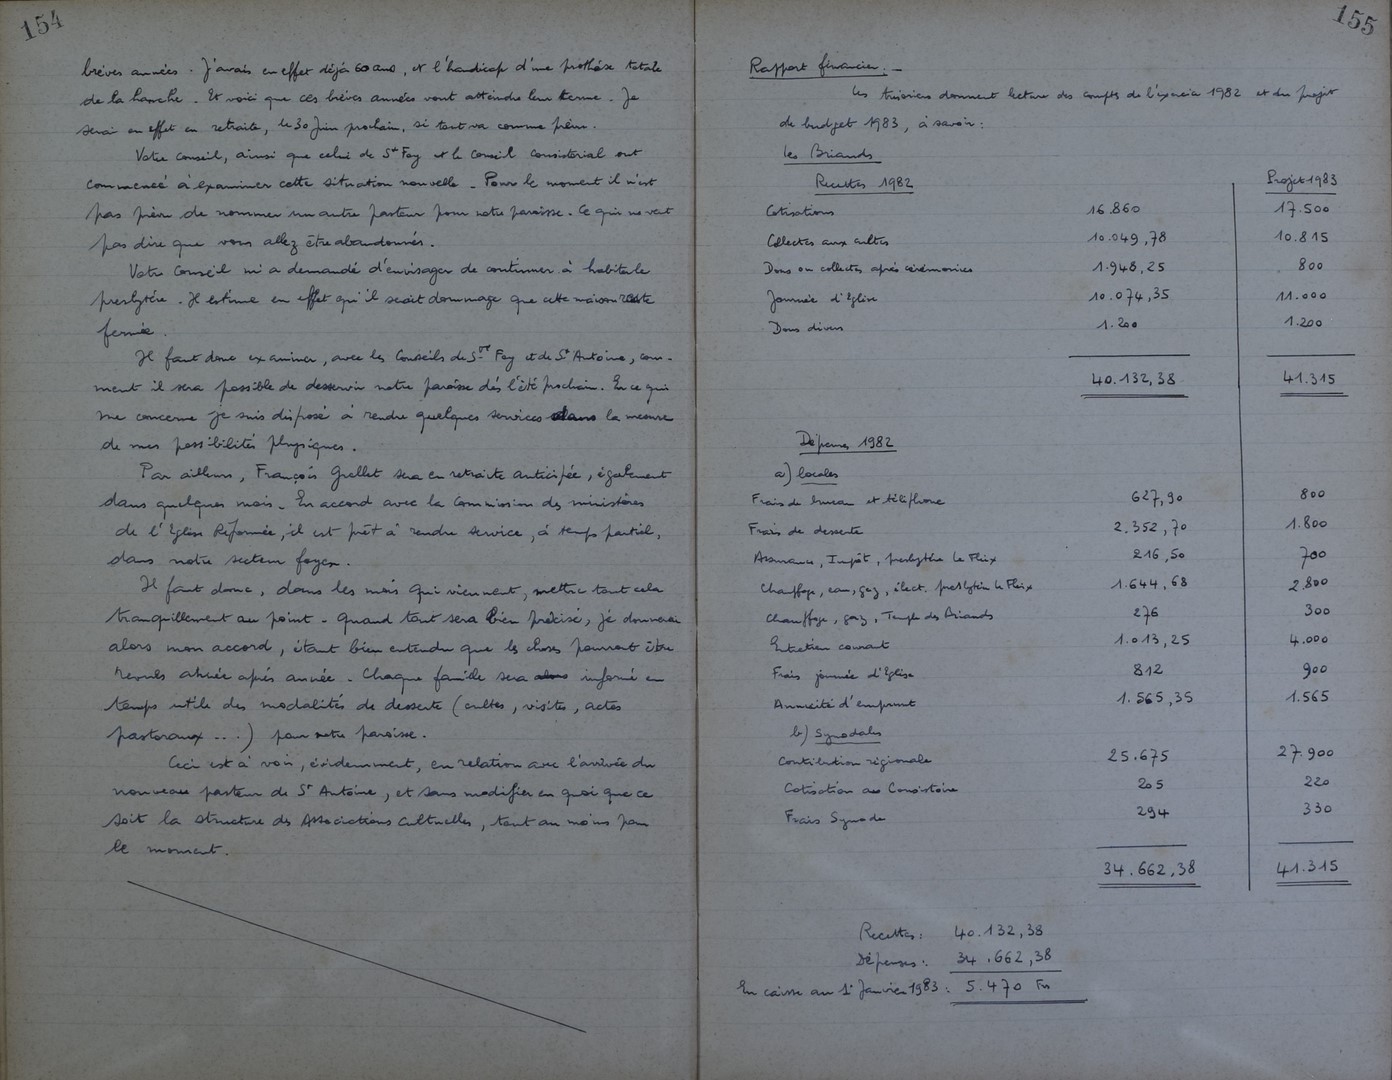 154
brèves années. J'avais en effet déjà 60 ans, et l'handicap d'une prothèse totale
de la hanche. Et voici que ces brèves années vont atteindre leur terme. Je
serai en effet en retraite, le 30 Juin prochain, si tout va comme prévu.
Votre conseil, ainsi que celui de Ste Foy et le Conseil consistorial ont
commencé à examiner cette situation nouvelle - Pour le moment il n'est
pas prévu de nommer un autre pasteur pour notre paroisse. Ce qui ne veut
pas dire que vous allez être abandonnés.
Votre Conseil m'a demandé d'envisager de continuer à habiter le
presbytère. Il estime en effet qu'il serait dommage que cette maison reste
fermée.
Il faut donc examiner, avec les Conseils de Ste Foy et de St Antoine, com-
ment il sera possible de desservir notre paroisse dès l'été prochain. En ce qui
me concerne je suis disposé à rendre quelques services dans la mesure
de mes possibilités physiques.
Par ailleurs, François Grellet sera en retraite anticipée, également
dans quelques mois. En accord avec la Commission des ministères
de l'Eglise Réformée, il est prêt à rendre service, à temps partiel,
dans notre secteur foyen.
Il faut donc, dans les mois qui viennent, mettre tout cela
tranquillement au point - Quand tout sera bien précisé, je donnerai
alors mon accord, étant bien entendu que les choses pourront être
revues année après année - Chaque famille sera informé en
temps utile des modalités de desserte (cultes, visites, actes
pastoraux ...) pour notre paroisse.
Ceci est à voir, évidemment, en relation avec l'arrivée du
nouveau pasteur de St Antoine, et sans modifier en quoi que ce
soit la structure des Associations cultuelles, tout au moins pour
le moment.
155
Rapport financier. -
Les trésoriers donnent lecture des comptes de l'exercice 1982 et du projet
de budget 1983, à savoir :
les Briands
Recettes 1982 Projet 1983
Cotisations 16.860 17.500
Collectes aux cultes 10.049,78 10.815
Dons ou collectes après cérémonies 1.948,25 800
Journée d'Eglise 10.074,35 11.000
Dons divers 1.200 1.200
40.132,38 41.315
Dépenses 1982
a) locales
Frais de bureau et téléphone 627,90 800
Frais de desserte 2.352,70 1.800
Assurance, Impôt, presbytère Le Fleix 216,50 700
Chauffage, eau, gaz, élect. presbytère Le Fleix 1.644,68 2.800
Chauffage, gaz, Temple des Briands 276 300
Entretien courant 1.013,25 4.000
Frais journée d'Eglise 812 900
Annuité d'emprunt 1.565,35 1.565
b) Synodales
Contribution régionale 25.675 27.900
Cotisation au Consistoire 205 220
Frais Synode 294 330
34.662,38 41.315
Recettes : 40.132,38
Dépenses : 34.662,38
En caisse au 1° Janvier 1983 : 5.470 Frs